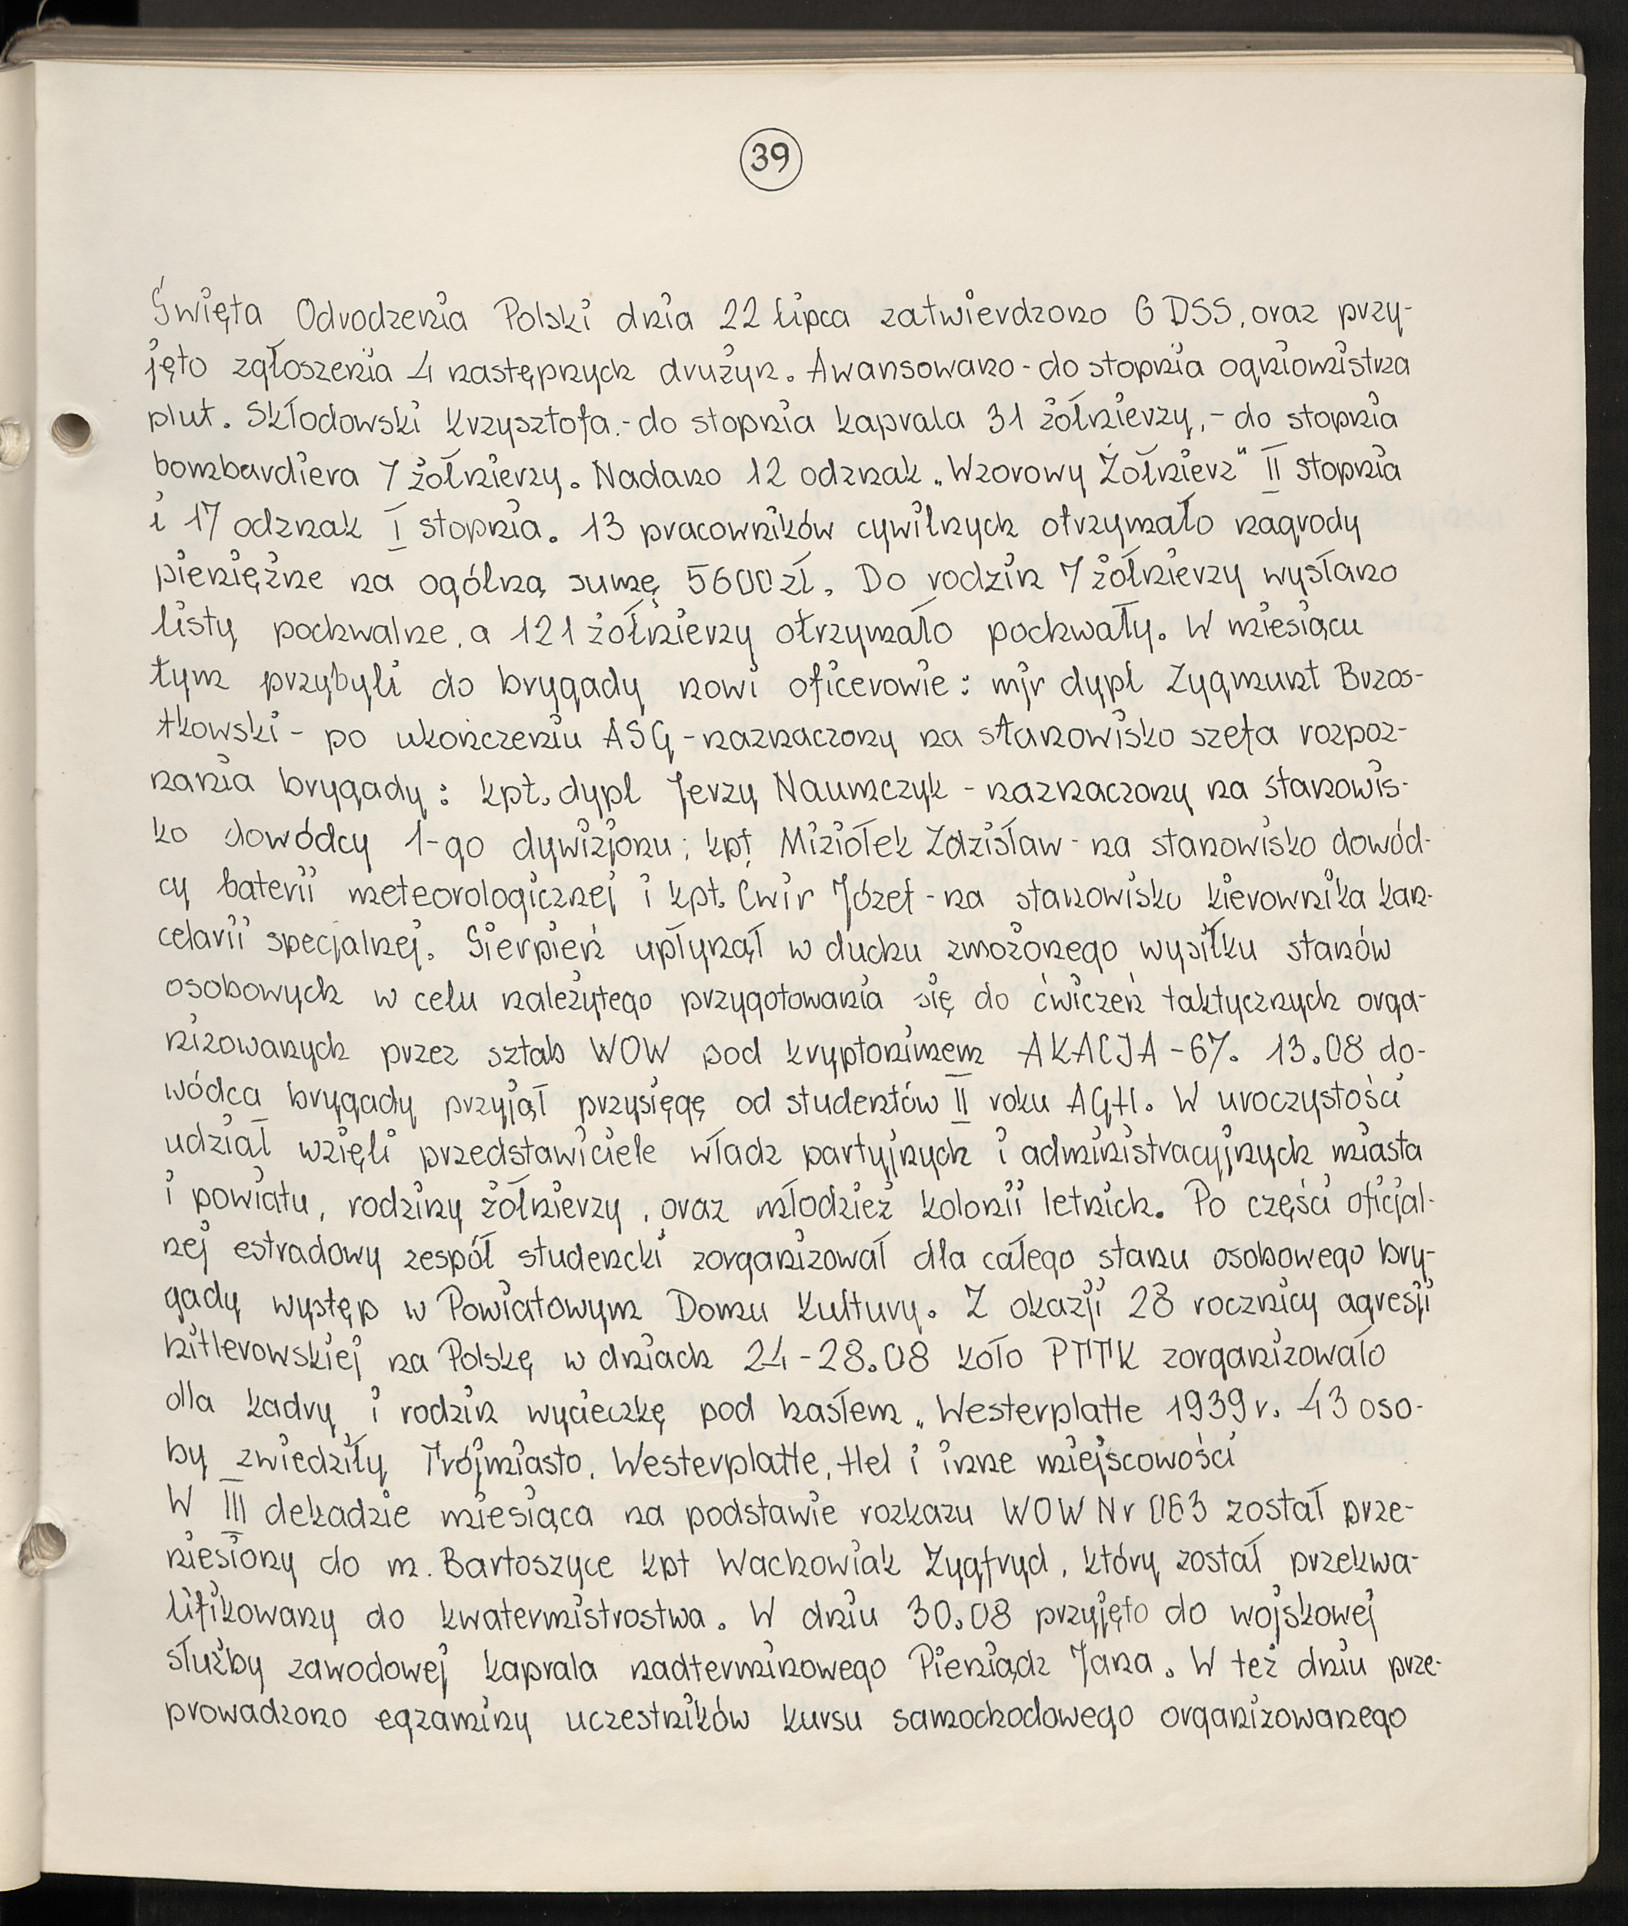 39
Święta Odrodzenia Polski dnia 22 lipca zatwierdzono 6 DSS, oraz przy-
jęto zgłoszenia 4 następnych drużyn. Awansowano - do stopnia ogniomistrza
plut. Skłodowski Krzysztofa. - do stopnia kaprala 31 żołnierzy, - do stopnia
bombardiera 7 żołnierzy. Nadano 12 odznak „Wzorowy Żołnierz" II stopnia
i 17 odznak I stopnia. 13 pracowników cywilnych otrzymało nagrody
pieniężne na ogólną sumę 5600 zł. Do rodzin 7 żołnierzy wysłano
listy pochwalne, a 121 żołnierzy otrzymało pochwały. W miesiącu
tym przybyli do brygady nowi oficerowie: mjr dypl Zygmunt Brzos-
tkowski - po ukończeniu ASG - naznaczony na stanowisko szefa rozpoz-
nania brygady: kpt. dypl Jerzy Naumczyk - naznaczony na stanowis-
ko dowódcy 1-go dywizjonu; kpt Miziołek Zdzisław - na stanowisko dowód-
cy baterii meteorologicznej i kpt. Ćwir Józef - na stanowisko kierownika kan-
celarii specjalnej. Sierpień upłynął w duchu zmożonego wysiłku stanów
osobowych w celu należytego przygotowania się do ćwiczeń taktycznych orga-
nizowanych przez sztab WOW pod kryptonimem AKACJA - 67. 13.08 do-
wódca brygady przyjął przysięgę od studentów II roku AGH. W uroczystości
udział wzięli przedstawiciele władz partyjnych i administracyjnych miasta
i powiatu, rodziny żołnierzy, oraz młodzież kolonii letnich. Po części oficjal-
nej estradowy zespół studencki zorganizował dla całego stanu osobowego bry-
gady występ w Powiatowym Domu Kultury. Z okazji 28 rocznicy agresji
hitlerowskiej na Polskę w dniach 24 - 28.08 koło PTTK zorganizowało
dla kadry i rodzin wycieczkę pod hasłem „Westerplatte 1939 r. 43 oso-
by zwiedziły Trójmiasto, Westerplatte, Hel i inne miejscowości
W III dekadzie miesiąca na podstawie rozkazu WOW Nr 063 został prze-
niesiony do m. Bartoszyce kpt Wachowiak Zygfryd, który został przekwa-
lifikowany do kwatermistrostwa. W dniu 30.08 przyjęto do wojskowej
służby zawodowej kaprala nadterminowego Pieniądz Jana. W też dniu prze-
prowadzono egzaminy uczestników kursu samochodowego organizowanego